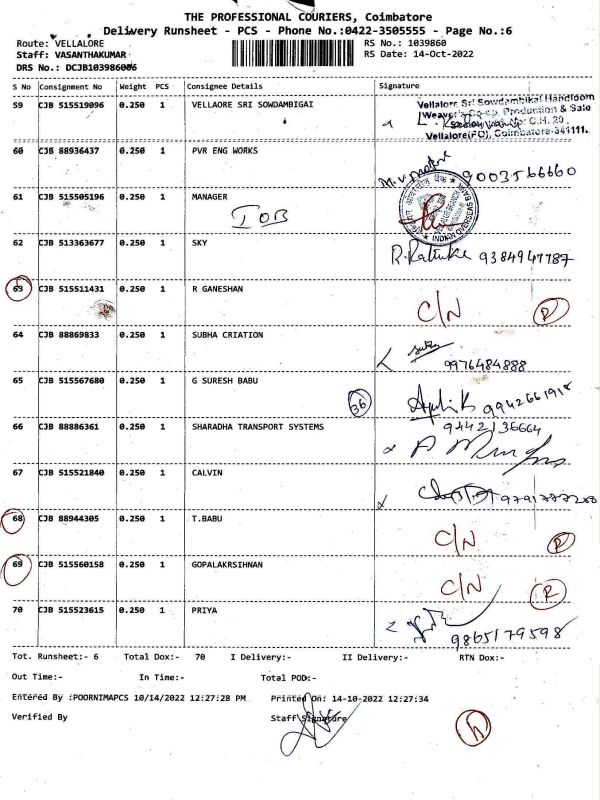 THE PROFESSIONAL COURIERS, Coimbatore
Delivery Runsheet - PCS - Phone No.:0422-3505555 - Page No.:6
Route: VELLALORE RS No.: 1039860
Staff: VASANTHAKUMAR RS Date: 14-Oct-2022
DRS No.: DCJB103986006
S No Consignment No Weight PCS Consignee Details Signature
59 CJB 515519096 0.250 1 VELLAORE SRI SOWDAMBIGAI
Vellalore Sri Sowdambikai Handloom
Weaver's Co-op. Production & Sale
Vellalore(PO), Coimbatore-641111.
60 CJB 88936437 0.250 1 PVR ENG WORKS 9003566660
61 CJB 515505196 0.250 1 MANAGER
IOB
INDIAN OVERSEAS BANK
62 CJB 513363677 0.250 1 SKY 9384941787
63 CJB 515511431 0.250 1 R GANESHAN C/N R
64 CJB 88869833 0.250 1 SUBHA CRIATION
9976484888
65 CJB 515567680 0.250 1 G SURESH BABU 36 9942661918
66 CJB 88886361 0.250 1 SHARADHA TRANSPORT SYSTEMS 9442136664
67 CJB 515521840 0.250 1 CALVIN
68 CJB 88944305 0.250 1 T.BABU C/N R
69 CJB 515560158 0.250 1 GOPALAKRSIHNAN C/N R
70 CJB 515523615 0.250 1 PRIYA
9865179598
Tot. Runsheet:- 6 Total Dox:- 70 I Delivery:- II Delivery:- RTN Dox:-
Out Time:- In Time:- Total POD:-
Entered By :POORNIMAPCS 10/14/2022 12:27:28 PM Printed On: 14-10-2022 12:27:34
Verified By Staff Signature